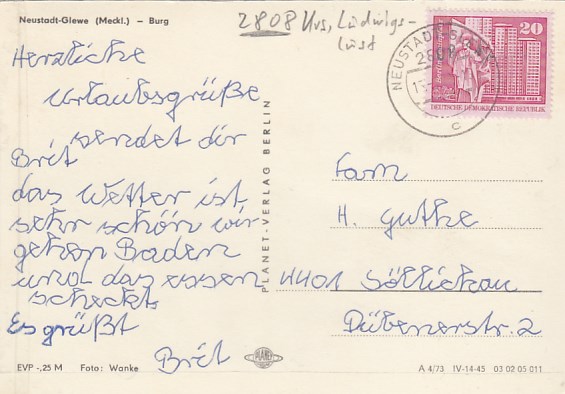 Neustadt-Glewe (Meckl.) – Burg
2808 Krs. Ludwigs-
lust
NEUSTADT-GLEWE
2808
c
20
DEUTSCHE DEMOKRATISCHE REPUBLIK
Herzliche
Urlaubsgrüße
sendet dir
Brit
das Wetter ist
sehr schön wir
gehen Baden
und das essen
scheckt
Es grüßt
Brit
PLANET-VERLAG BERLIN
Fam
H. Guthe
4401 Söllichau
Dübenerstr. 2
EVP -,25 M Foto: Wanke
PLANET
A 4/73 IV-14-45 03 02 05 011